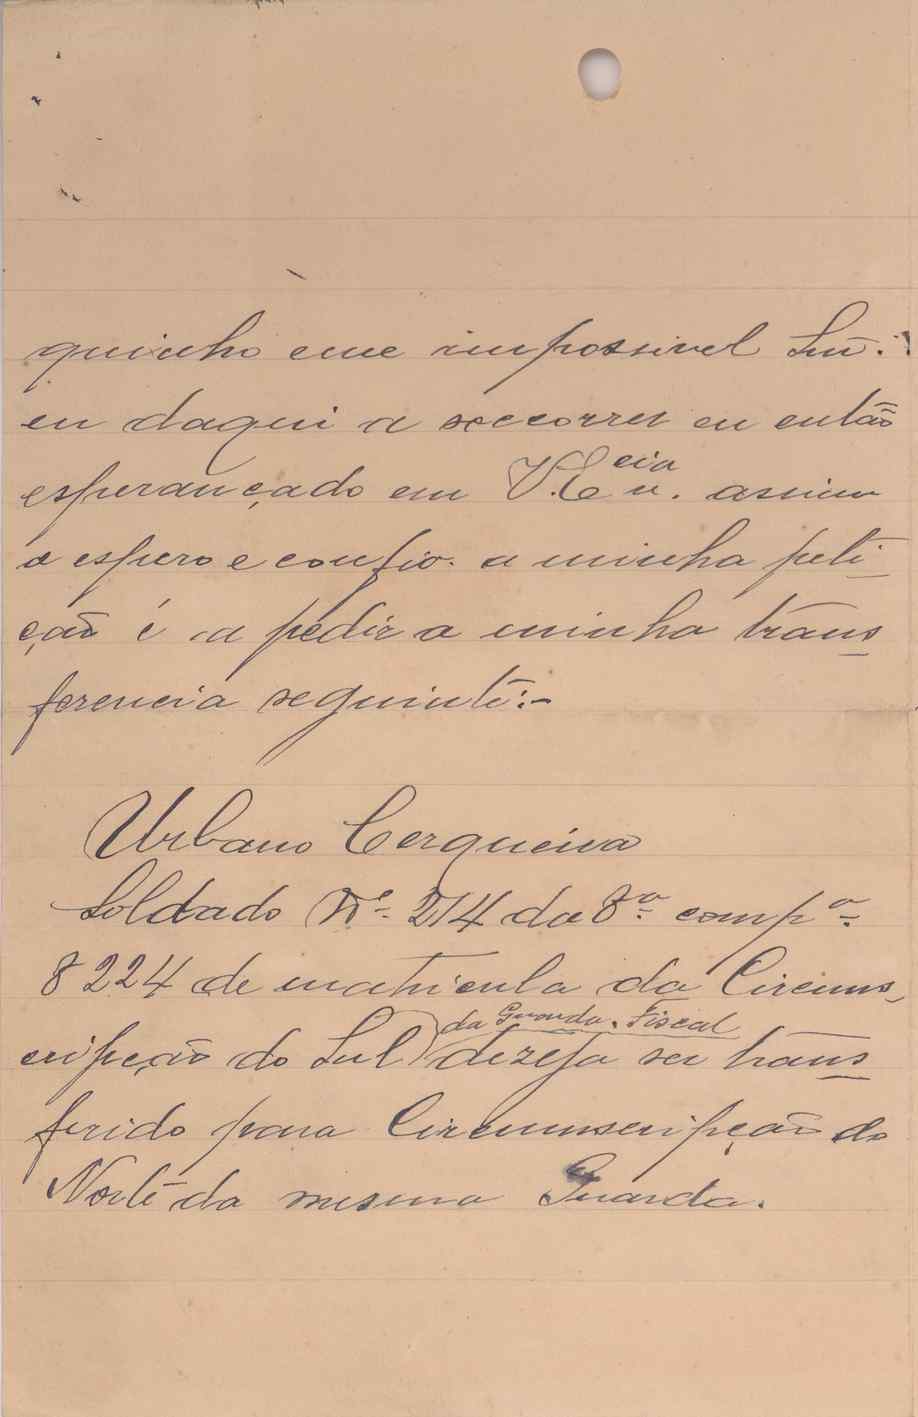 quinho eme impossivel Snr.
eu daqui a soccorrer eu então
esperançado em V. Ecia n. assim
o espero e confio. a minha peti-
ção é a pedir a minha trans
ferencia seguinte:-
Urbano Cerqueira
Soldado Nº 214 da 8ª compª
8224 de matricula da Circums,
cripção do Sul da Guarda Fiscal dezeja ser trans
ferido para Circumscripção do
Norte da mesma Guarda.